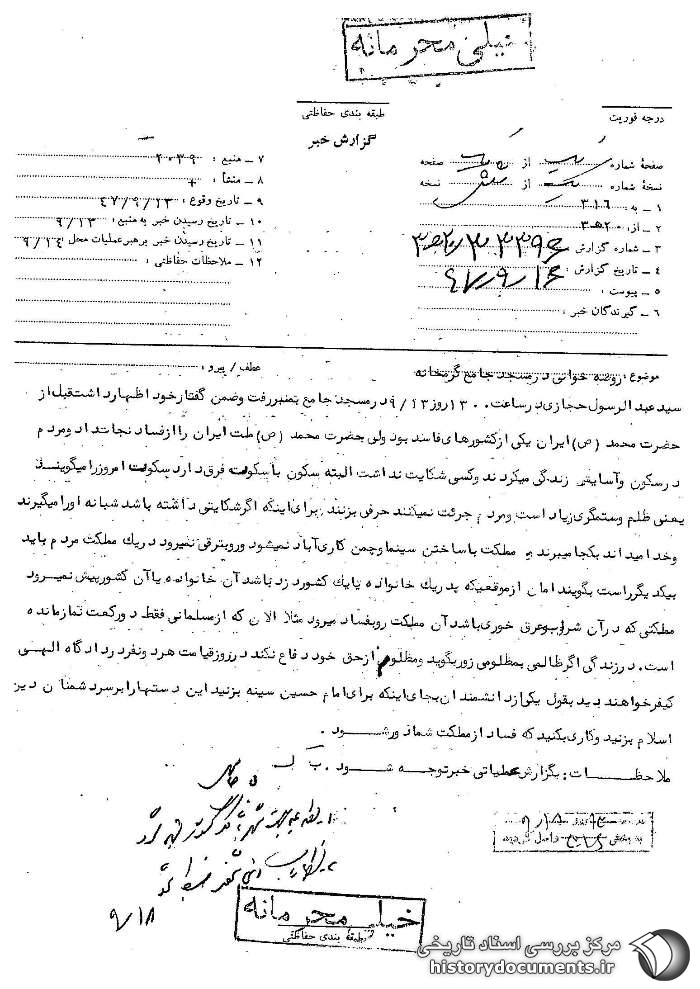 خیلی محرمانه
درجه فوریت
طبقه بندی حفاظتی
گزارش خبر
صفحهٔ شماره یک از یک صفحه
نسخهٔ شماره یک از شش نسخه
۱ ـ به : ۳۱۶
۲ ـ از : ۲۰ هـ ۳
۳ ـ شماره گزارش
۴ ـ تاریخ گزارش
۵ ـ پیوست :
۶ ـ گیرندگان خبر :
۷ ـ منبع : ۲۰۳۹
۸ ـ منشأ : +
۹ ـ تاریخ وقوع : ۴۷/۹/۱۳
۱۰ ـ تاریخ رسیدن خبر به منبع : ۹/۱۳
۱۱ ـ تاریخ رسیدن خبر برهبر عملیات محل ۹/۱۴
۱۲ ـ ملاحظات حفاظتی :
موضوع : روضه خوانی در مسجد جامع گرمخانه
عطف / پیرو :
سید عبد الرسول حجازی در ساعت ۱۳۰۰ روز ۹/۱۳ در مسجد جامع بمنبر رفت وضمن گفتار خود اظهار داشت قبل از
حضرت محمد (ص) ایران یکی از کشورهای فاسد بود ولی حضرت محمد (ص) ملت ایران را از فساد نجات داد و مردم
در سکون وآسایش زندگی میکردند وکسی شکایت نداشت البته سکون با سکوت فرق دارد سکوت امروز را میگویند
یعنی ظلم وستمگری زیاد است ومردم جرئت نمیکنند حرفی بزنند برای اینکه اگر شکایتی داشته باشد شبانه اورا میگیرند
وخدا میداند بکجا میبرند مملکت با ساختن سینما وچمن کاری آباد نمیشود وروبترقی نمیرود در یك مملکت مردم باید
بیکدیگر راست بگویند امان از موقعیکه پدر یك خانواده یا یك کشور دزد باشد آن خانواده یا آن کشور پیش نمیرود
مملکتی که در آن شراب وعرق خوری باشد آن مملکت روبفساد میرود مثلا الان که از مسلمانی فقط دو رکعت نماز مانده
است . در زندگی اگر ظالمی بمظلومی زور بگوید ومظلوم از حق خود دفاع نکند در روز قیامت هر دو نفر در دادگاه الهی
کیفر خواهند دید بقول یکی از دانشمندان بجای اینکه برای امام حسین سینه بزنید این دستها را بر سر دشمنان دین
اسلام بزنید وکاری بکنید که فساد از مملکت شما دور شود .
ملاحظات : بگزارش عملیاتی خبر توجه شود .
۹/۱۸
خیلی محرمانه
طبقه بندی حفاظتی
مرکز بررسی اسناد تاریخی
historydocuments.ir